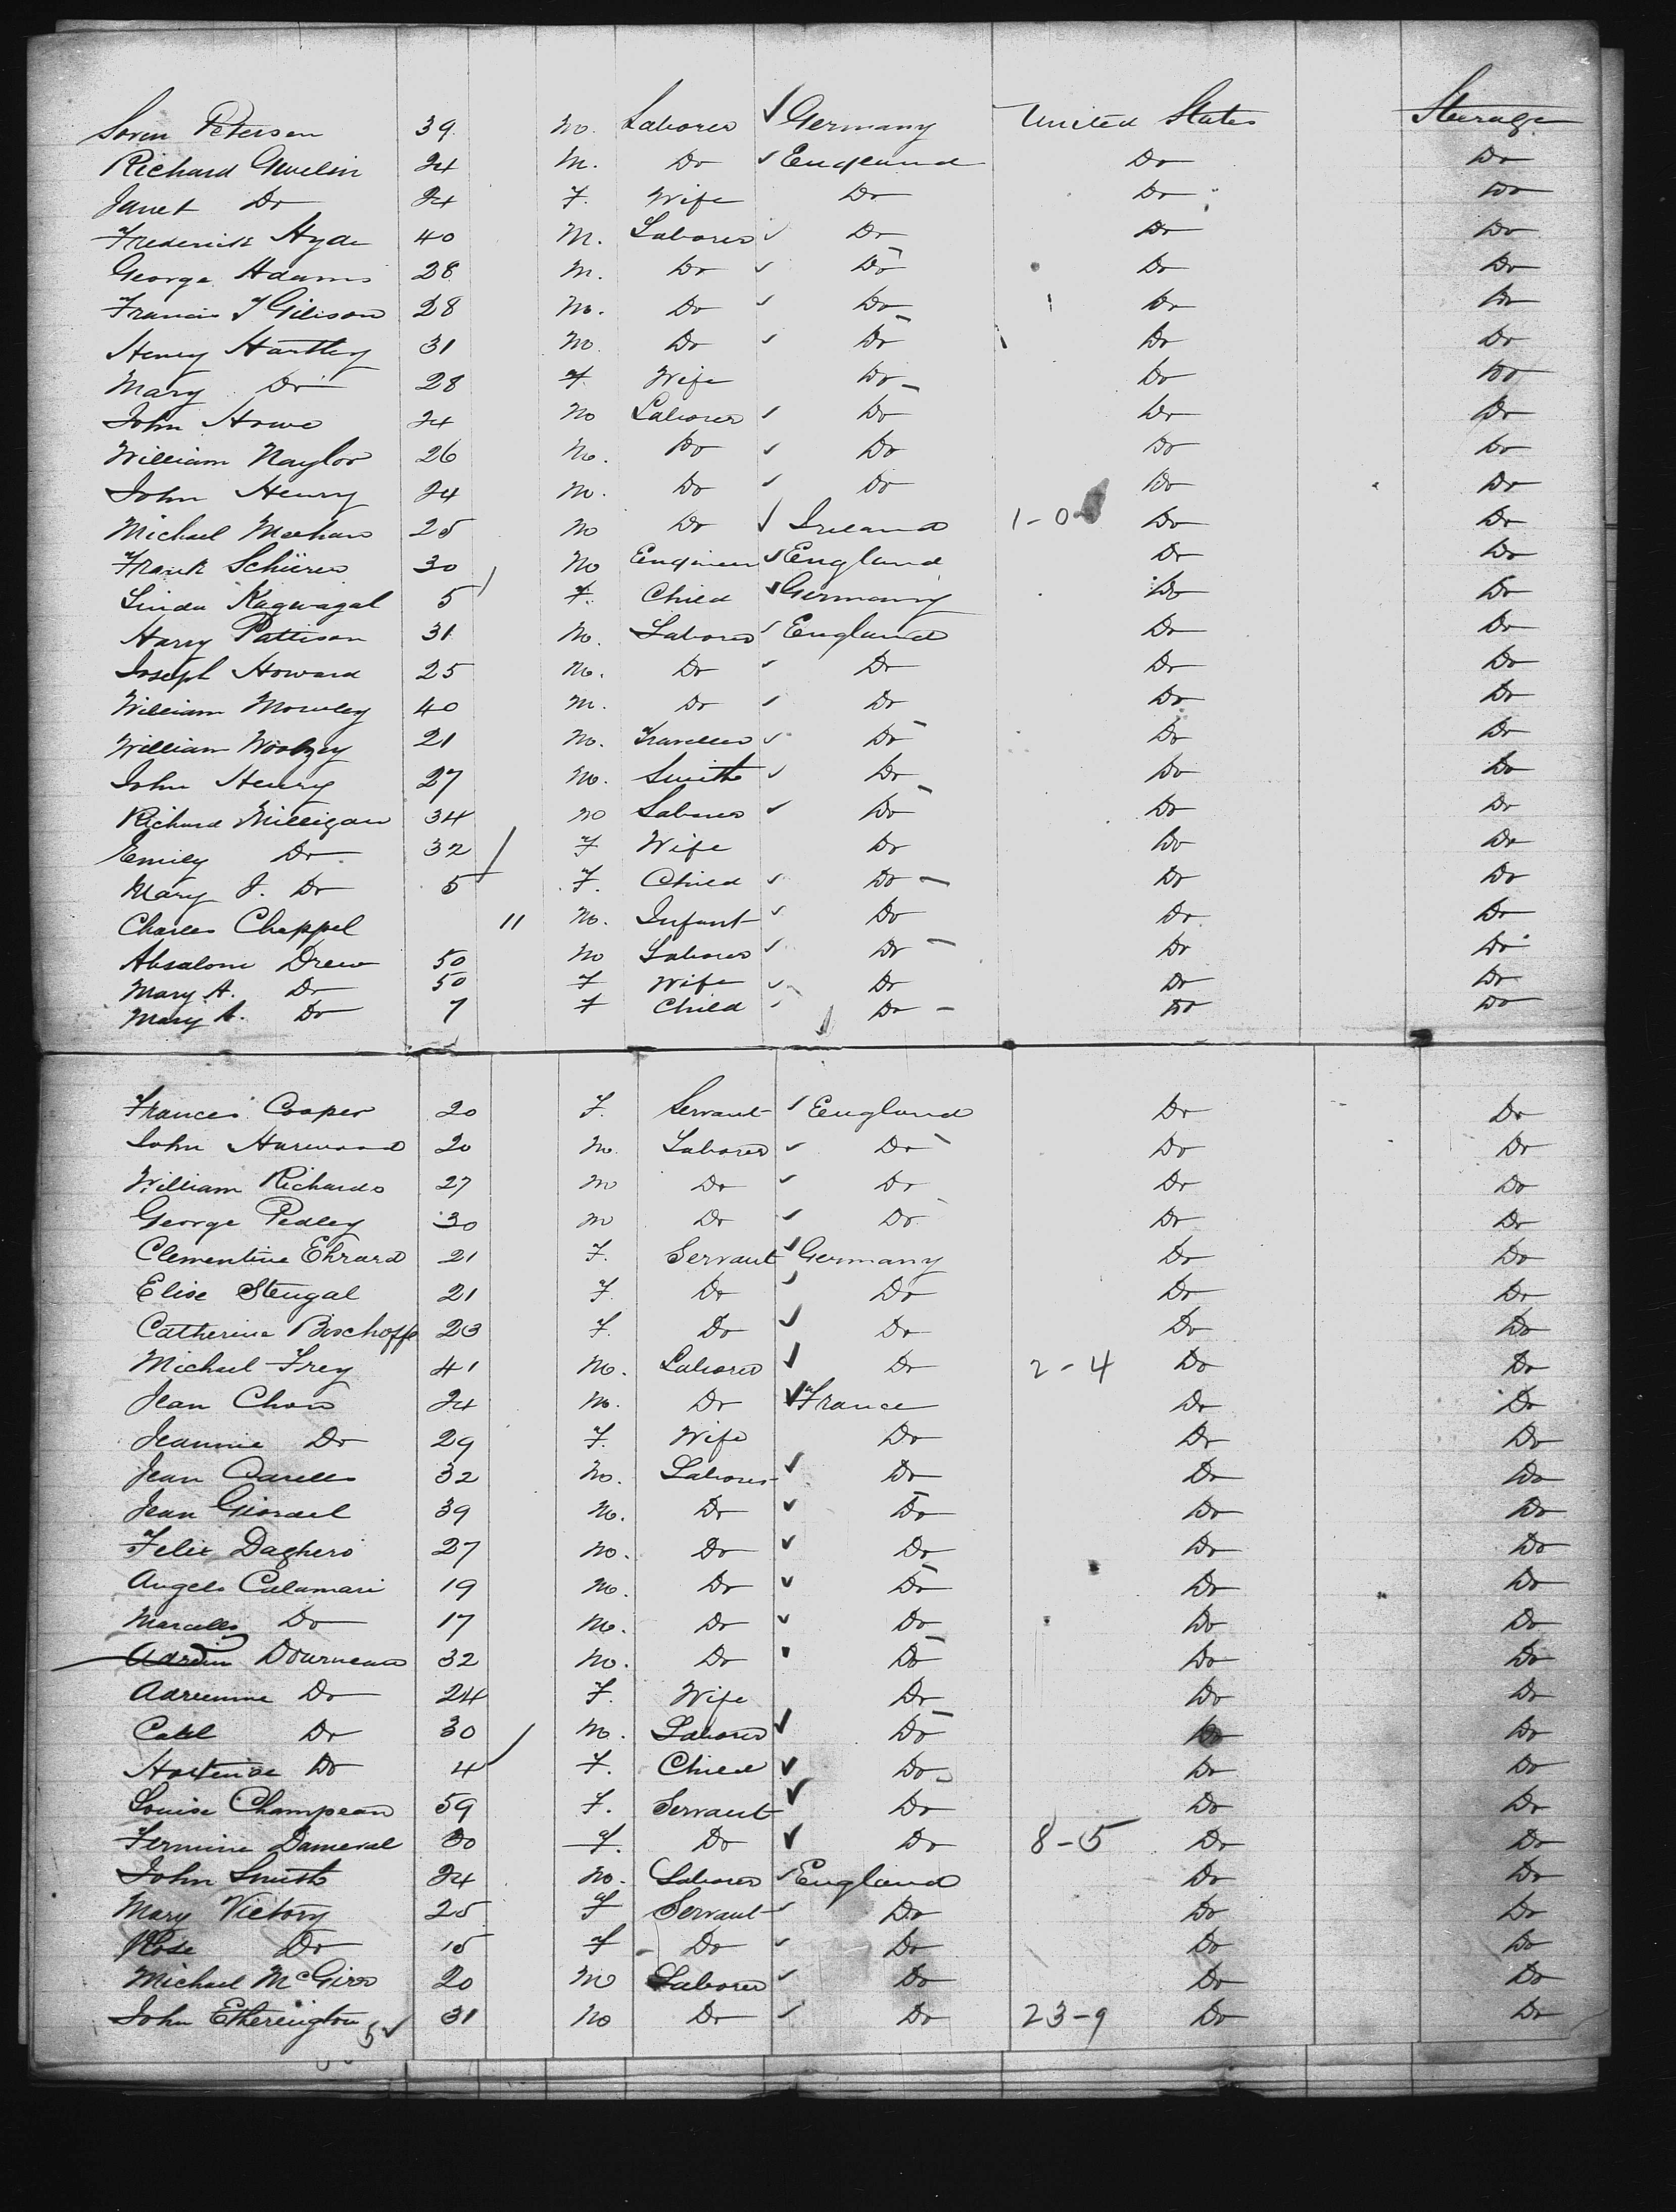 Soren Petersen 39 M. Laborer ✓ Germany United States Steerage
Richard 24 M. Do ✓ England Do Do
Janet Do 24 F. Wife Do Do Do
Frederick Hyde 40 M. Laborer ✓ Do Do Do
George Adams 28 M. Do ✓ Do Do Do
Francis J Gilison 28 M. Do ✓ Do Do Do
Henry Hartley 31 M. Do ✓ Do Do Do
Mary Do 28 F. Wife Do Do Do
John Howe 24 M Laborer ✓ Do Do Do
William Naylor 26 M. Do ✓ Do Do Do
John Henry 24 M. Do ✓ Do Do Do
Michael Meehan 25 M Do ✓ Ireland 1-0 Do Do
Frank 30 M Engineer ✓ England Do Do
Linda Kagwagal 5 F. Child ✓ Germany Do Do
Harry Pattison 31 M. Laborer ✓ England Do Do
Joseph Howard 25 M. Do ✓ Do Do Do
William 40 M. Do ✓ Do Do Do
William 21 M. Traveller ✓ Do Do Do
John Henry 27 M. Smith ✓ Do Do Do
Richard Milligan 34 M Laborer ✓ Do Do Do
Emily Do 32 F Wife Do Do Do
Mary J. Do 5 F. Child ✓ Do Do Do
Charles Chappel 11 M. Infant ✓ Do Do Do
Absalom Drew 50 M Laborer ✓ Do Do Do
Mary A. Do 50 F Wife ✓ Do Do Do
Mary A. Do 7 F Child Do Do Do
Frances Cooper 20 F. Servant ✓ England Do Do
John Harwood 20 M. Laborer ✓ Do Do Do
William Richards 27 M Do ✓ Do Do Do
George Pedley 30 M Do ✓ Do Do Do
Clementine Ehrard 21 F. Servant ✓ Germany Do Do
Elise Stengal 21 F. Do ✓ Do Do Do
Catherine Bischoff 23 F. Do ✓ Do Do Do
Michael Frey 41 M. Laborer ✓ Do 2-4 Do Do
Jean 24 M. Do ✓ France Do Do
Jeannie Do 29 F. Wife Do Do Do
Jean 32 M. Laborer ✓ Do Do Do
Jean 39 M. Do ✓ Do Do Do
Felix Daghero 27 M. Do ✓ Do Do Do
Angelo Calamari 19 M. Do ✓ Do Do Do
Marcello Do 17 M. Do ✓ Do Do Do
32 M. Do Do Do Do
Adrienne Do 24 F. Wife Do Do Do
Do 30 M. Laborer ✓ Do Do Do
Hortense Do 4 F. Child ✓ Do Do Do
Louise Champean 59 F. Servant ✓ Do Do Do
Fermine Dameral 30 F. Do ✓ Do 8-5 Do Do
John Smith 24 M. Laborer ✓ England Do Do
Mary Victory 25 F Servant ✓ Do Do Do
Rose Do 15 F Do ✓ Do Do Do
Michael 20 M Laborer ✓ Do Do Do
John Etherington 31 M Do ✓ Do 23-9 Do Do